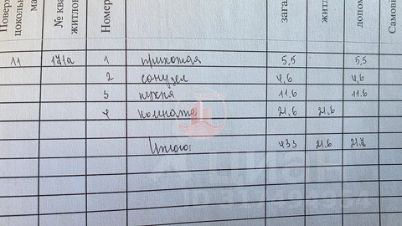 Поверх
цокольн
ма
№ ква
житлов
Номер
зага
жит
допом
Самові
11 171а 1 прихожая 5,5 5,5
2 санузел 4,6 4,6
3 кухня 11.6 11.6
4 комната 21.6 21.6
Итого: 43.3 21.6 21.7